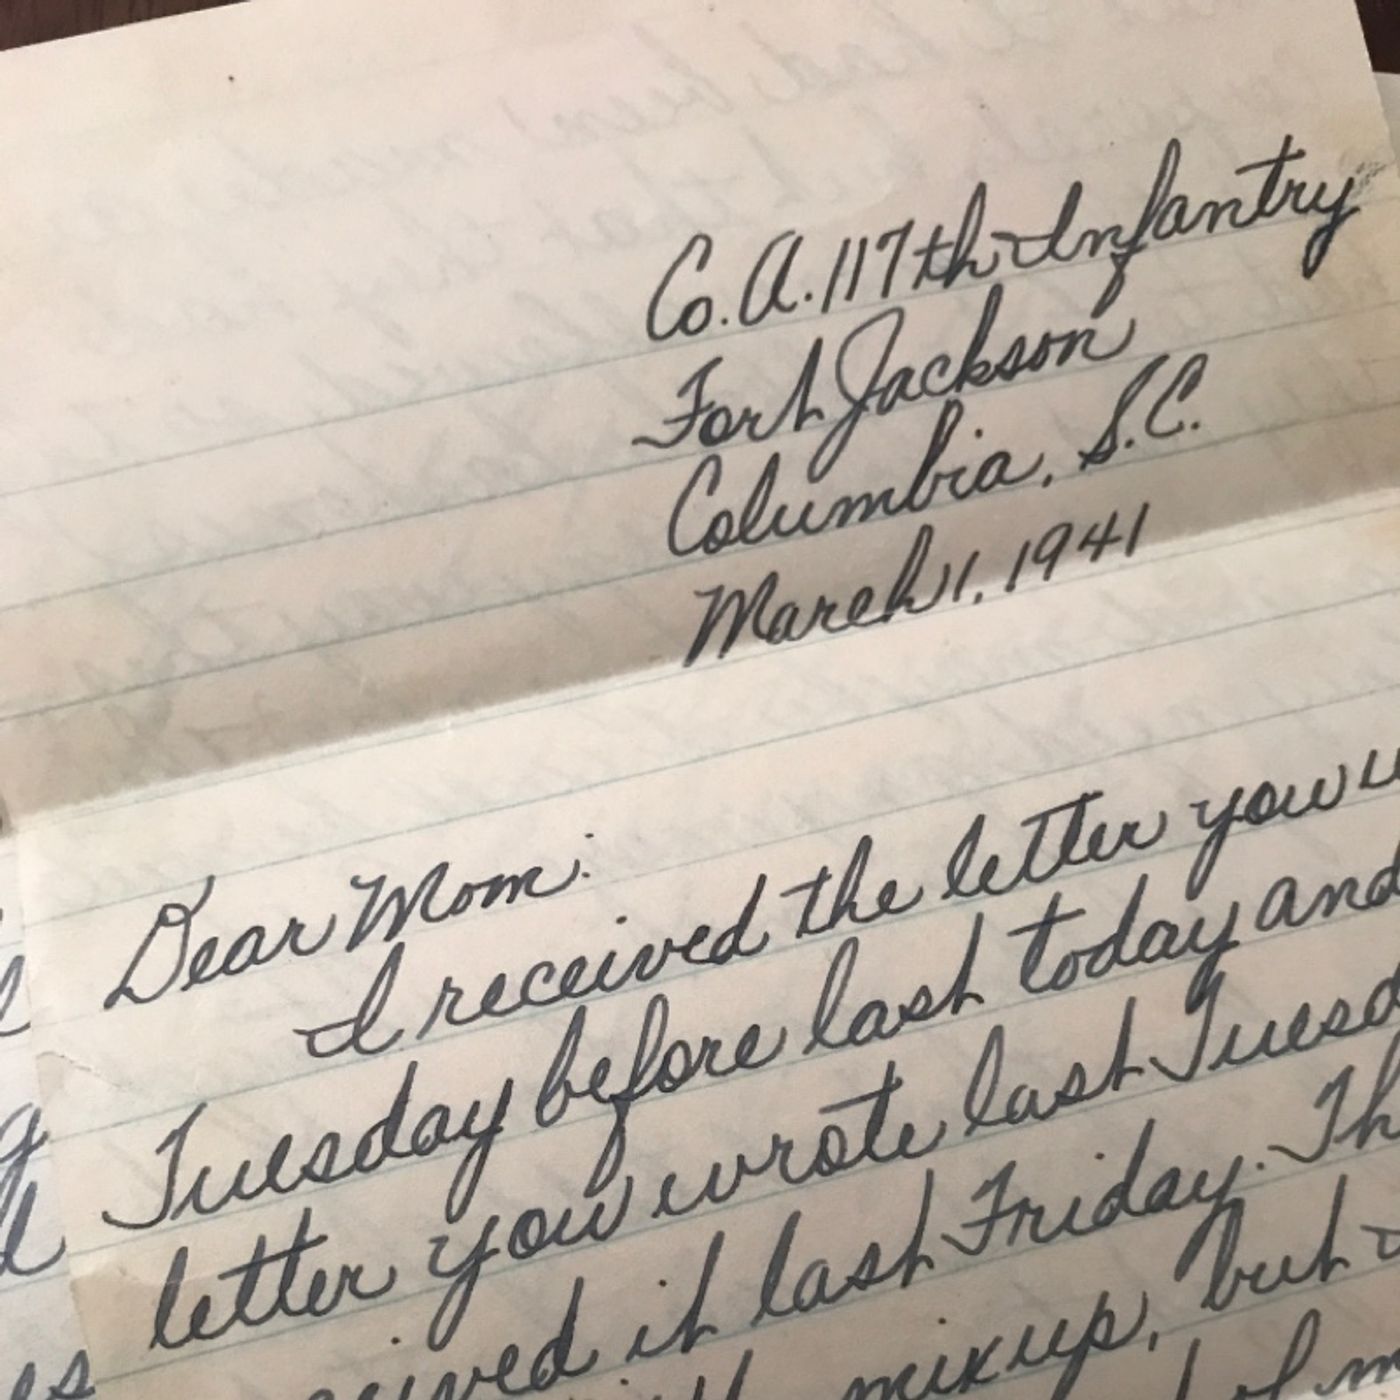 Co. A. 117th Infantry
Fort Jackson
Columbia, S.C.
March 1, 1941
Dear Mom:
I received the letter you
Tuesday before last today and
letter you wrote last Tuesd
ceived it last Friday. Th
mixup, but I